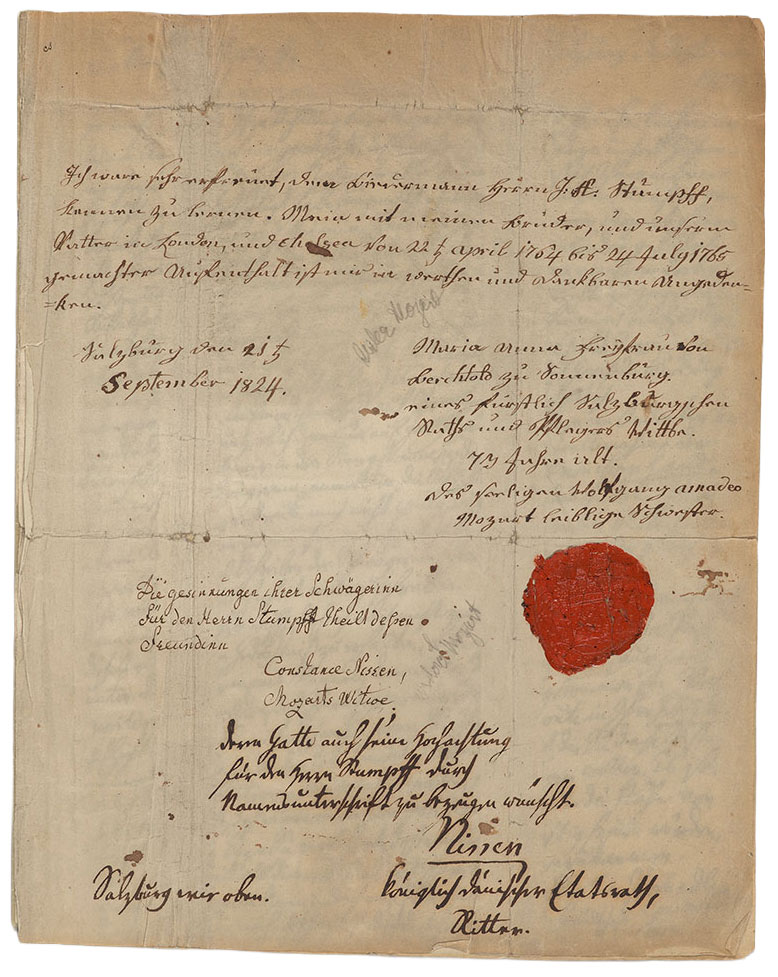 Ich ware sehr erfreuet, dem Biedermann Herrn J. A: Stumpff,
kennen zu lernen. Mein mit meinen Bruder, und unserm
Vatter in London, und Chelsea von 22t april 1764 bis 24 July 1765
gemachter Aufenthalt ist mir in werthen und dankbaren Angeden-
=ken.
Salzburg den 21t
September 1824.
Maria Anna Freyfrau von
Berchtold zu Sonnenburg.
eines fürstlich Salzburgschen
Raths und Pflegers Wittbe.
73 Jahre alt.
des seeligen Wolfgang amadeo
Mozart leiblige Schwester.
Die gesinnungen ihrer Schwägerinn
Für den Herrn Stumpff theilt dessen
Freundinn
Constance Nissen,
Mozarts Witwe
deren Gatte auch seine Hochachtung
für den Herrn Stumpff durch
Namensunterschrift zu bezeugen wünscht.
Nissen
Salzburg wie oben.
königlich dänischer Etatsrath,
Ritter.